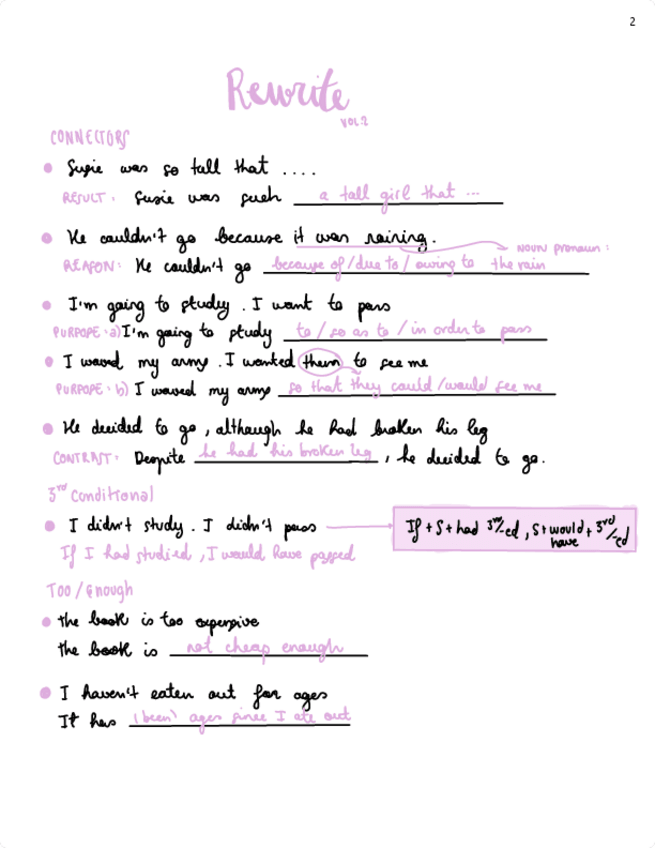 2
Rewrite
VOL.2
CONNECTORS
Susie was so tall that ....
RESULT: Susie was such a tall girl that ...
He couldn't go because it was raining.
NOUN PRONOUN:
REASON: He couldn't go because of/due to/ owing to the rain
I'm going to study. I want to pass
PURPOSE: a) I'm going to study to / so as to / in order to pass
I waved my arms. I wanted them to see me
PURPOSE: b) I waved my arms so that they could /would see me
He decided to go, although he had broken his leg
CONTRAST: Despite he had his broken leg, he decided to go.
3rd Conditional
I didn't study. I didn't pass
If + S + had 3rd/-ed, S + would + 3rd/-ed
have
If I had studied, I would have passed
Too/Enough
the book is too expensive
the book is not cheap enough
I haven't eaten out for ages
It has (been) ages since I ate out